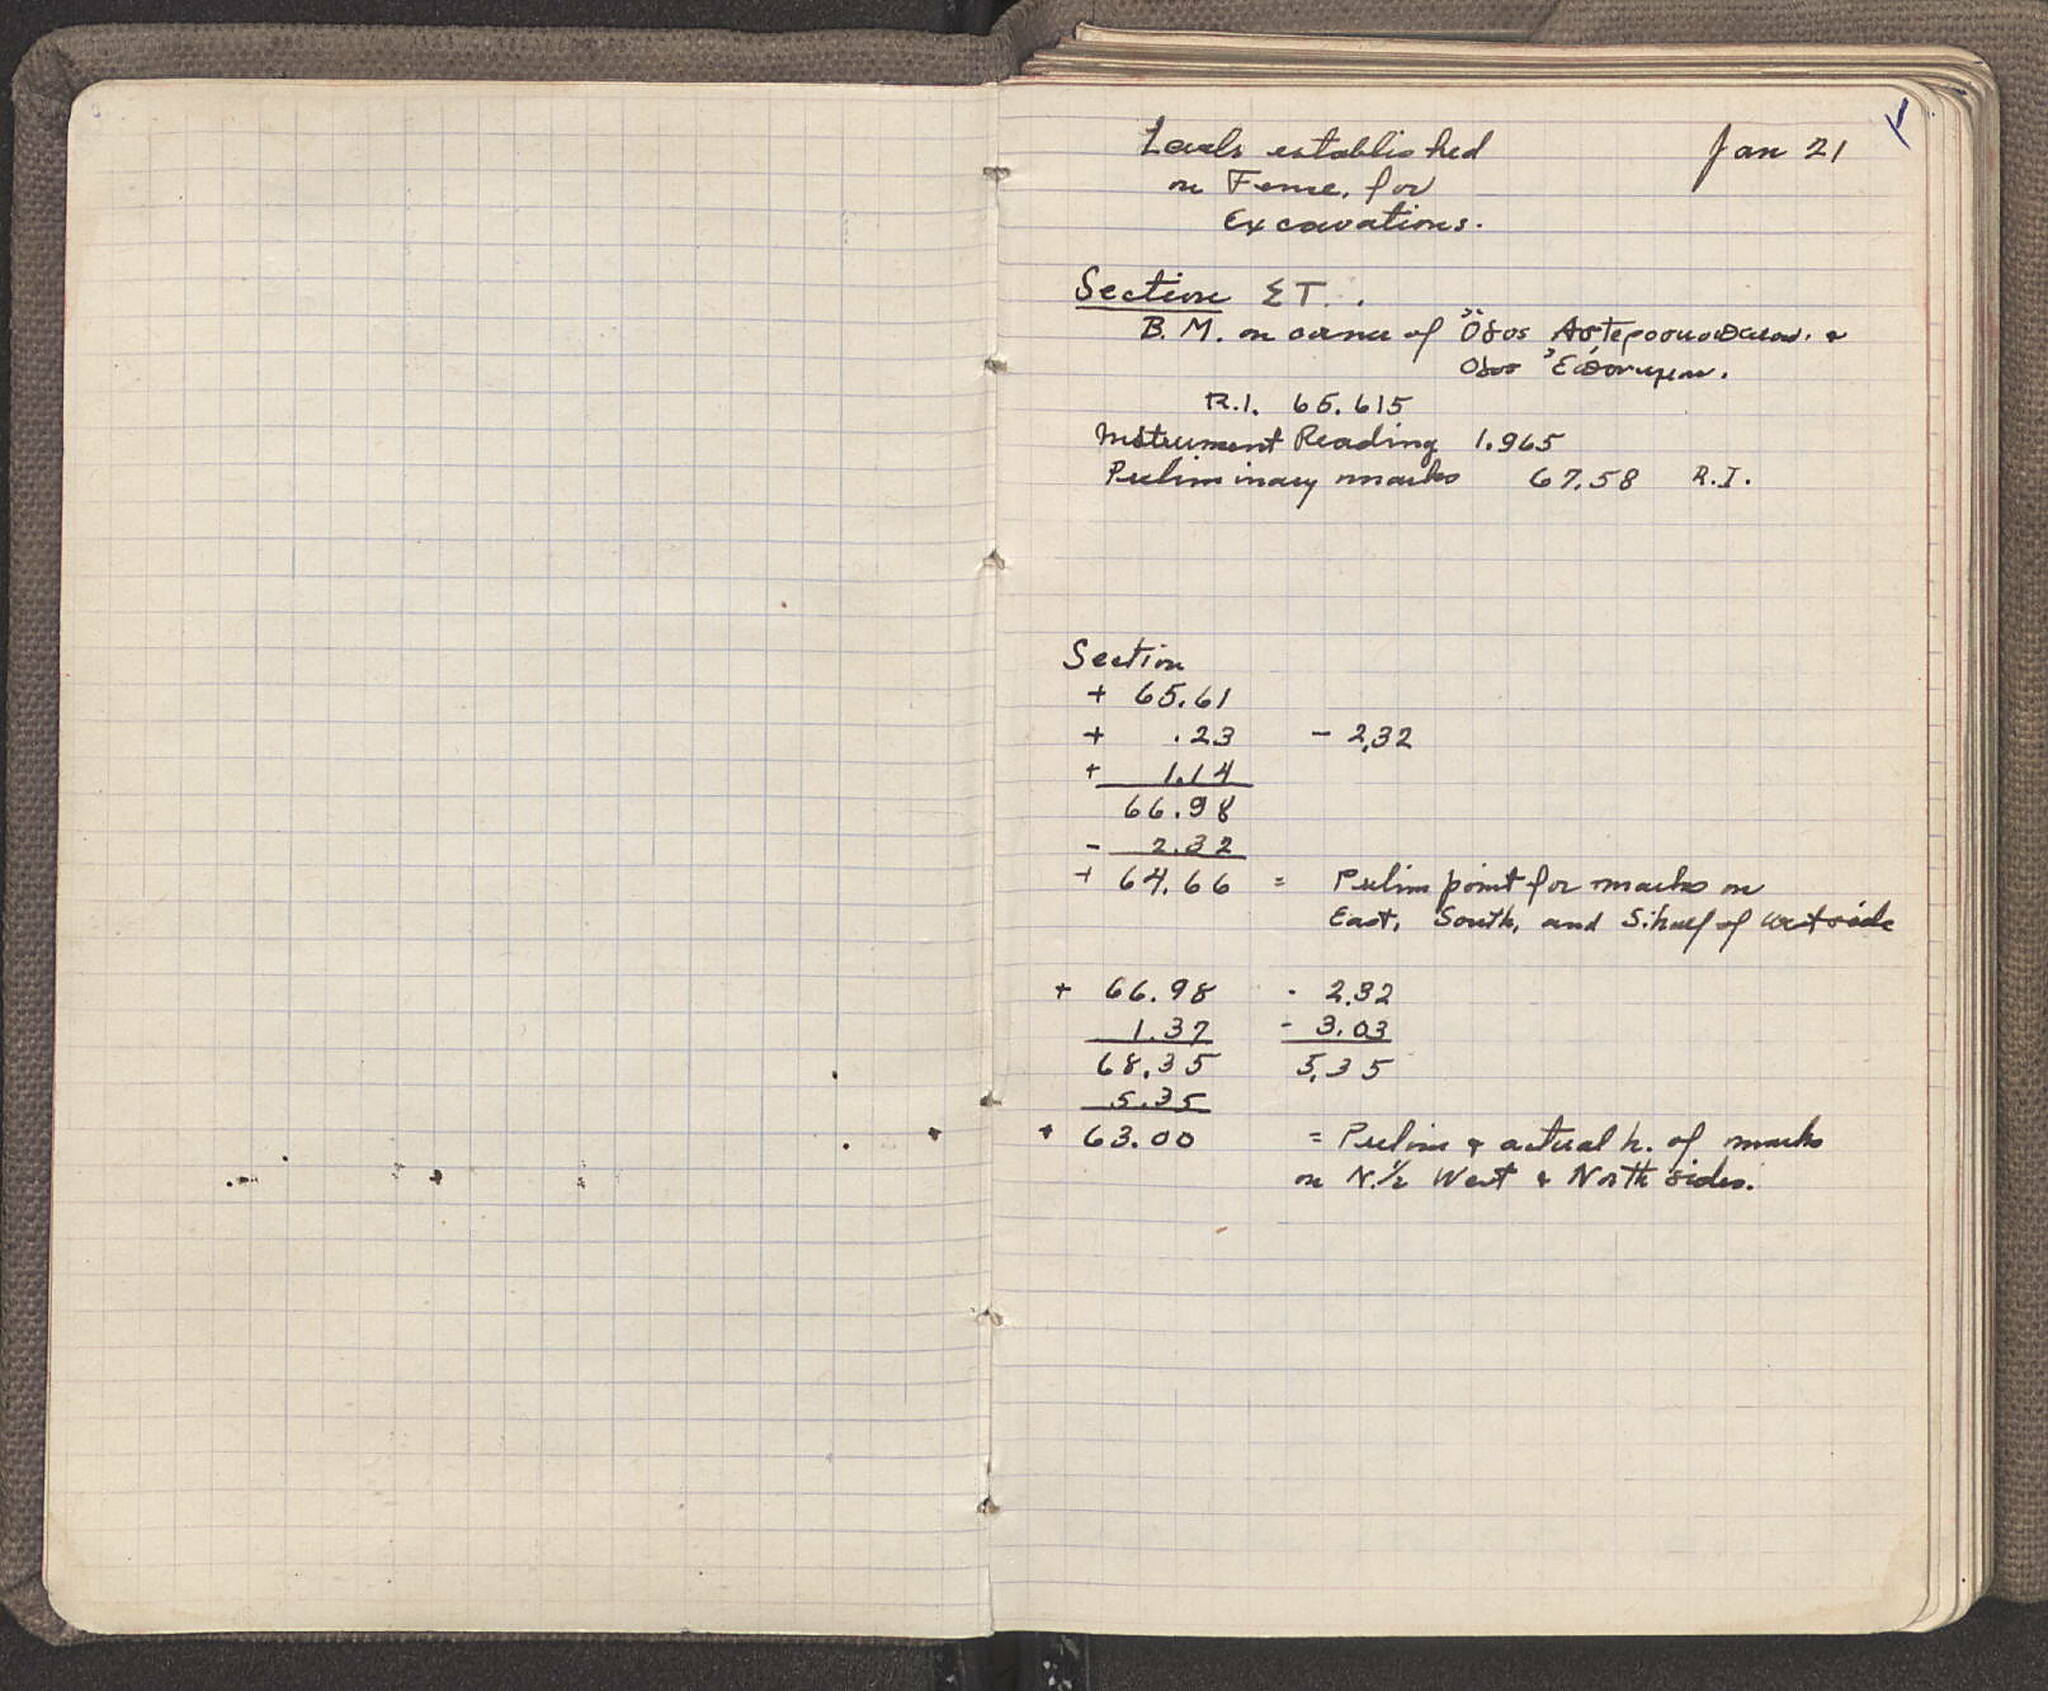 Levels established Jan 21
on Fence, for
Excavations.
Section ΣΤ.
B.M. on corner of Ὅδος &
Οδοσ
R.I. 65.615
Instrument Reading 1.965
Preliminary marks 67.58 R.I.
Section
+ 65.61
+ .23 - 2.32
+ 1.14
66.98
- 2.32
+ 64.66 = Prelim point for marks on
East, South, and S. half of West side
+ 66.98 - 2.32
1.37 - 3.03
68.35 5.35
5.35
+ 63.00 = Prelim & actual h. of marks
on N. 1/2 West & North sides.